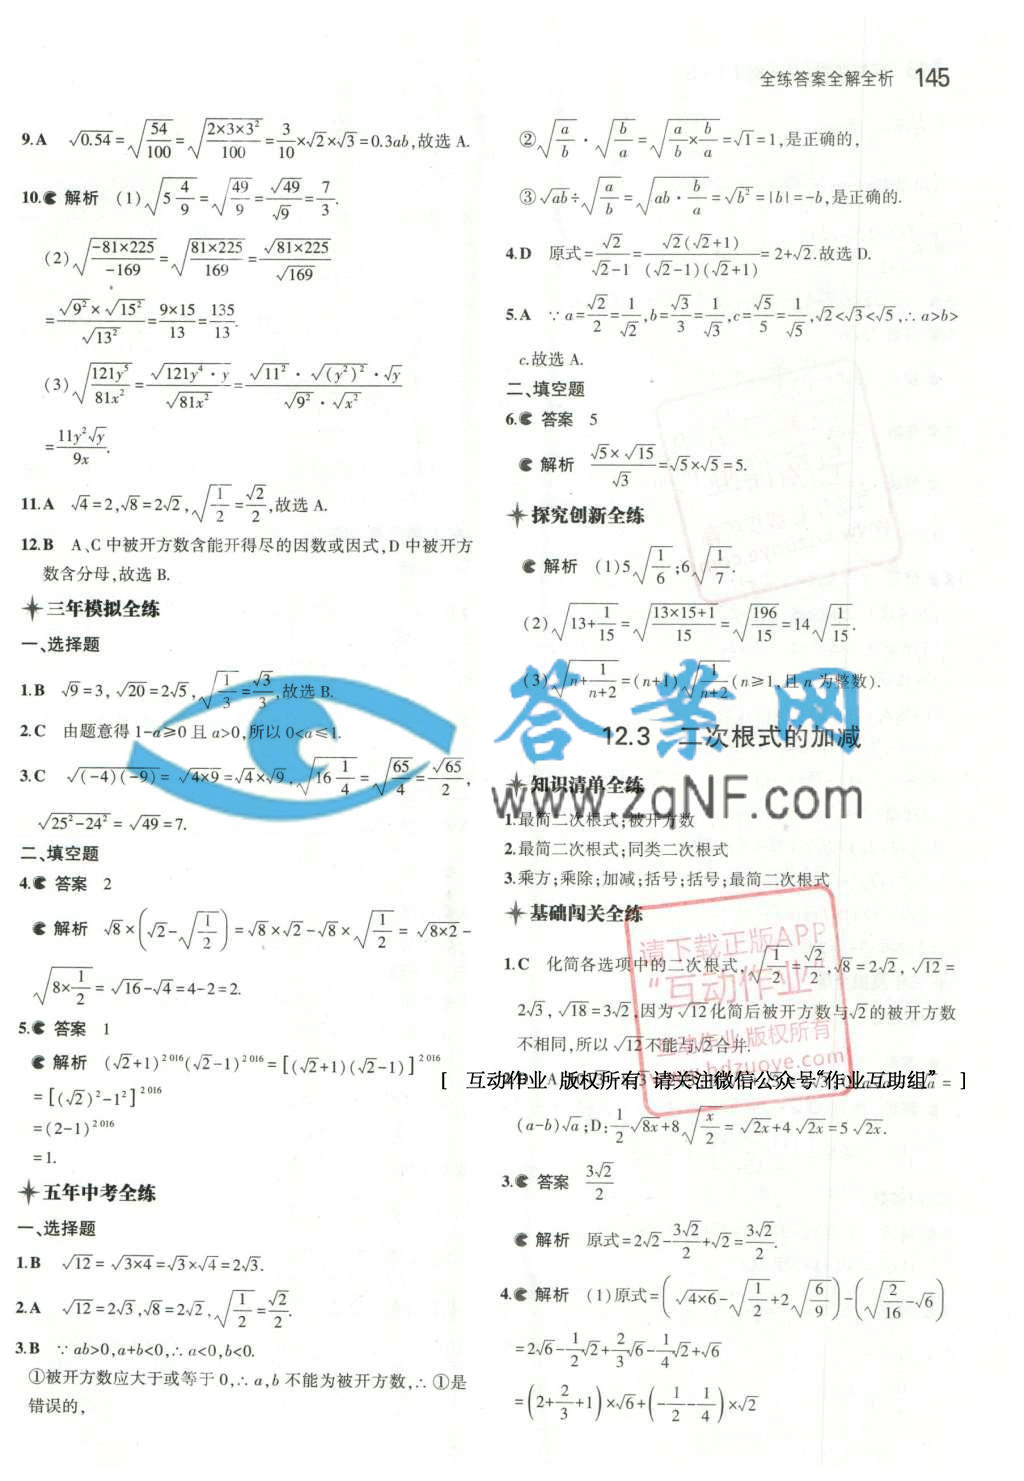 全练答案全解全析 145
9.A √0.54=√(54/100)=√(2×3×3²/100)=3/10×√2×√3=0.3ab,故选 A.
10. 解析 (1)√(5 4/9)=√(49/9)=√49/√9=7/3.
(2)√(-81×225/-169)=√(81×225/169)=√(81×225)/√169
=√9²×√15²/√13²=9×15/13=135/13.
(3)√(121y⁵/81x²)=√(121y⁴·y)/√(81x²)=√11²·√(y²)²·√y/√9²·√x²
=11y²√y/9x.
11.A √4=2,√8=2√2,√(1/2)=√2/2,故选 A.
12.B A、C 中被开方数含能开得尽的因数或因式,D 中被开方
数含分母,故选 B.
三年模拟全练
一、选择题
1.B √9=3,√20=2√5,√(1/3)=√3/3,故选 B.
2.C 由题意得 1-a≥0 且 a>0,所以 0<a≤1.
3.C √((-4)(-9))=√(4×9)=√4×√9,√(16 1/4)=√(65/4)=√65/2,
√(25²-24²)=√49=7.
二、填空题
4. 答案 2
解析 √8×(√2-√(1/2))=√8×√2-√8×√(1/2)=√(8×2)-
√(8×1/2)=√16-√4=4-2=2.
5. 答案 1
解析 (√2+1)²⁰¹⁶(√2-1)²⁰¹⁶=[(√2+1)(√2-1)]²⁰¹⁶
=[(√2)²-1²]²⁰¹⁶
=(2-1)²⁰¹⁶
=1.
五年中考全练
一、选择题
1.B √12=√(3×4)=√3×√4=2√3.
2.A √12=2√3,√8=2√2,√(1/2)=√2/2.
3.B ∵ ab>0,a+b<0,∴ a<0,b<0.
①被开方数应大于或等于 0,∴ a,b 不能为被开方数,∴ ①是
错误的,
②√(a/b)·√(b/a)=√(a/b×b/a)=√1=1,是正确的,
③√ab÷√(a/b)=√(ab·b/a)=√b²=|b|=-b,是正确的.
4.D 原式=√2/(√2-1)=√2(√2+1)/(√2-1)(√2+1)=2+√2.故选 D.
5.A ∵ a=√2/2=1/√2,b=√3/3=1/√3,c=√5/5=1/√5,√2<√3<√5,∴ a>b>
c.故选 A.
二、填空题
6. 答案 5
解析 √5×√15/√3=√5×√5=5.
探究创新全练
解析 (1)5√(1/6);6√(1/7).
(2)√(13+1/15)=√((13×15+1)/15)=√(196/15)=14√(1/15).
(3)√(n+1/(n+2))=(n+1)√(1/(n+2))(n≥1,且 n 为整数).
12.3 二次根式的加减
知识清单全练
1.最简二次根式;被开方数
2.最简二次根式;同类二次根式
3.乘方;乘除;加减;括号;括号;最简二次根式
基础闯关全练
1.C 化简各选项中的二次根式,√(1/2)=√2/2,√8=2√2,√12=
2√3,√18=3√2,因为√12化简后被开方数与√2的被开方数
不相同,所以√12不能与√2合并.
[ 互动作业 版权所有 请关注微信公众号“作业互助组” ]
(a-b)√a;D:1/2√8x+8√(x/2)=√2x+4√2x=5√2x.
3. 答案 3√2/2
解析 原式=2√2-3√2/2+√2=3√2/2.
4. 解析 (1)原式=(√(4×6)-√(1/2)+2√(6/9))-(√(2/16)-√6)
=2√6-1/2√2+2/3√6-1/4√2+√6
=(2+2/3+1)×√6+(-1/2-1/4)×√2
答案网
www.zqNF.com
请下载正版APP
“互动作业”
互动作业 版权所有
www.hdzuoye.com